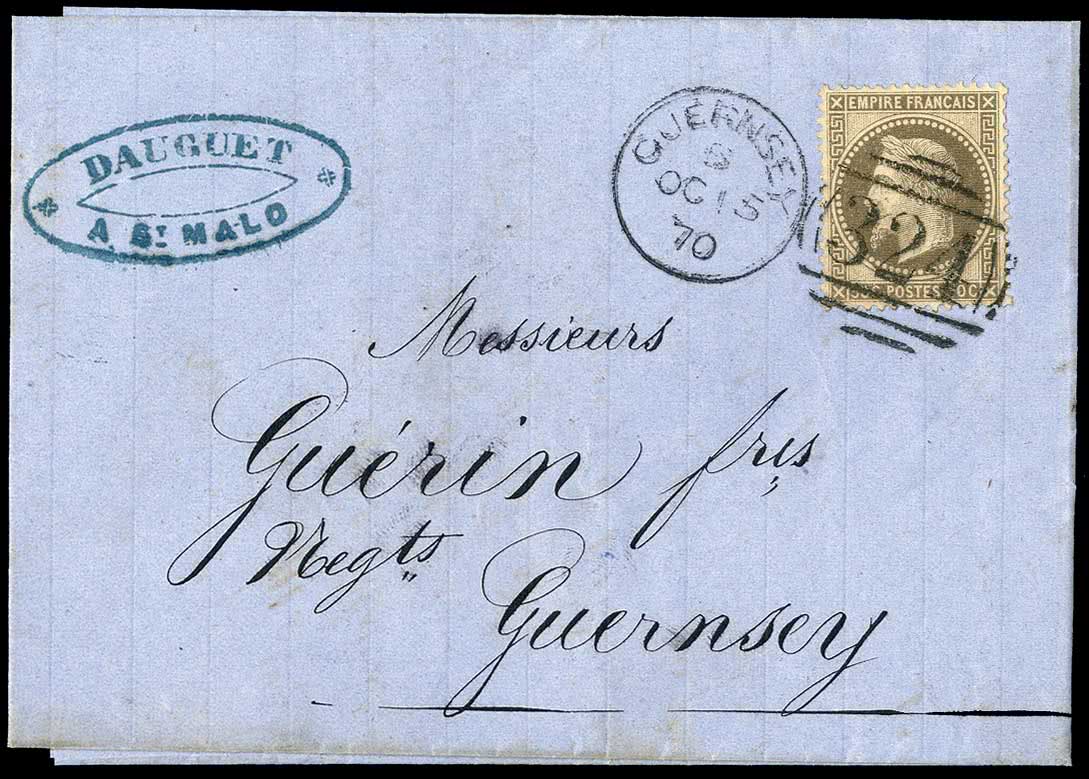 DAUGUET
A ST MALO
GUERNSEY
OC 15
70
EMPIRE FRANCAIS
324
POSTES
Messieurs
Guérin frès
Negts
Guernsey